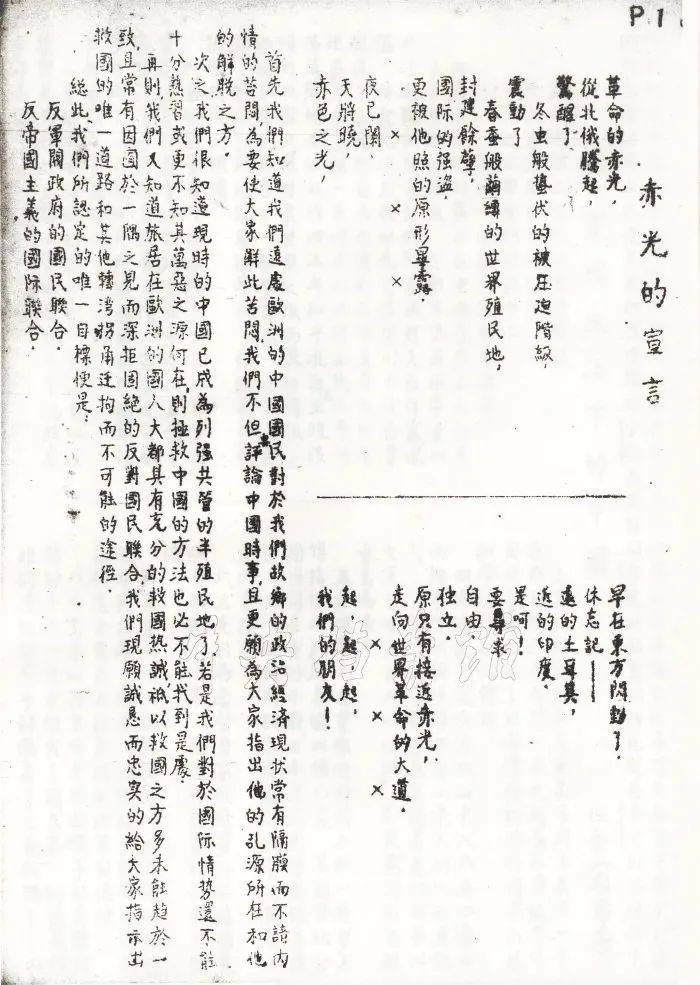 P.1
赤光的宣言
革命的赤光，
從北俄騰起，
驚醒了
冬虫般蟄伏的被压迫階級，
震動了
春蚕般繭縛的世界殖民地，
封建餘孽，
国际的强盗，
更被他照的原形畢露
× × ×
夜已闌，
天將曉，
赤色之光，
早在東方閃動了，
休忘記——
遠的土耳其，
近的印度，
是呵！
要尋求
自由，
独立，
原只有接近赤光，
走向世界革命的大道，
× × ×
起，起，起，
我們的朋友！
首先我們知道我們遠處歐洲的中國國民對於我們故鄉的政治經濟現状常有隔膜而不諳內
情的苦悶，為要使大家解此苦悶，我們不但評論中國時事，且更願為大家指出他的乱源所在和他
的解脫之方，
次之，我們很知道現時的中國已成為列强共管的半殖民地了，若是我們對於國际情势還不能
十分熟習或更不知其萬惡之源何在，則拯救中國的方法也必不能找到是處，
再則，我們又知道旅居在歐洲的國人大都具有充分的救國热誠，祇以救國之方多未能趋於一
致，且常有因囿於一隅之見而深拒固絕的反對國民聯合，我們現願誠恳而忠实的給大家指示出
救國的唯一道路和其他轉湾拐角迂拘而不可能的途徑，
總此，我們所認定的唯一目標便是：
反軍閥政府的國民聯合，
反帝國主義的國际聯合，